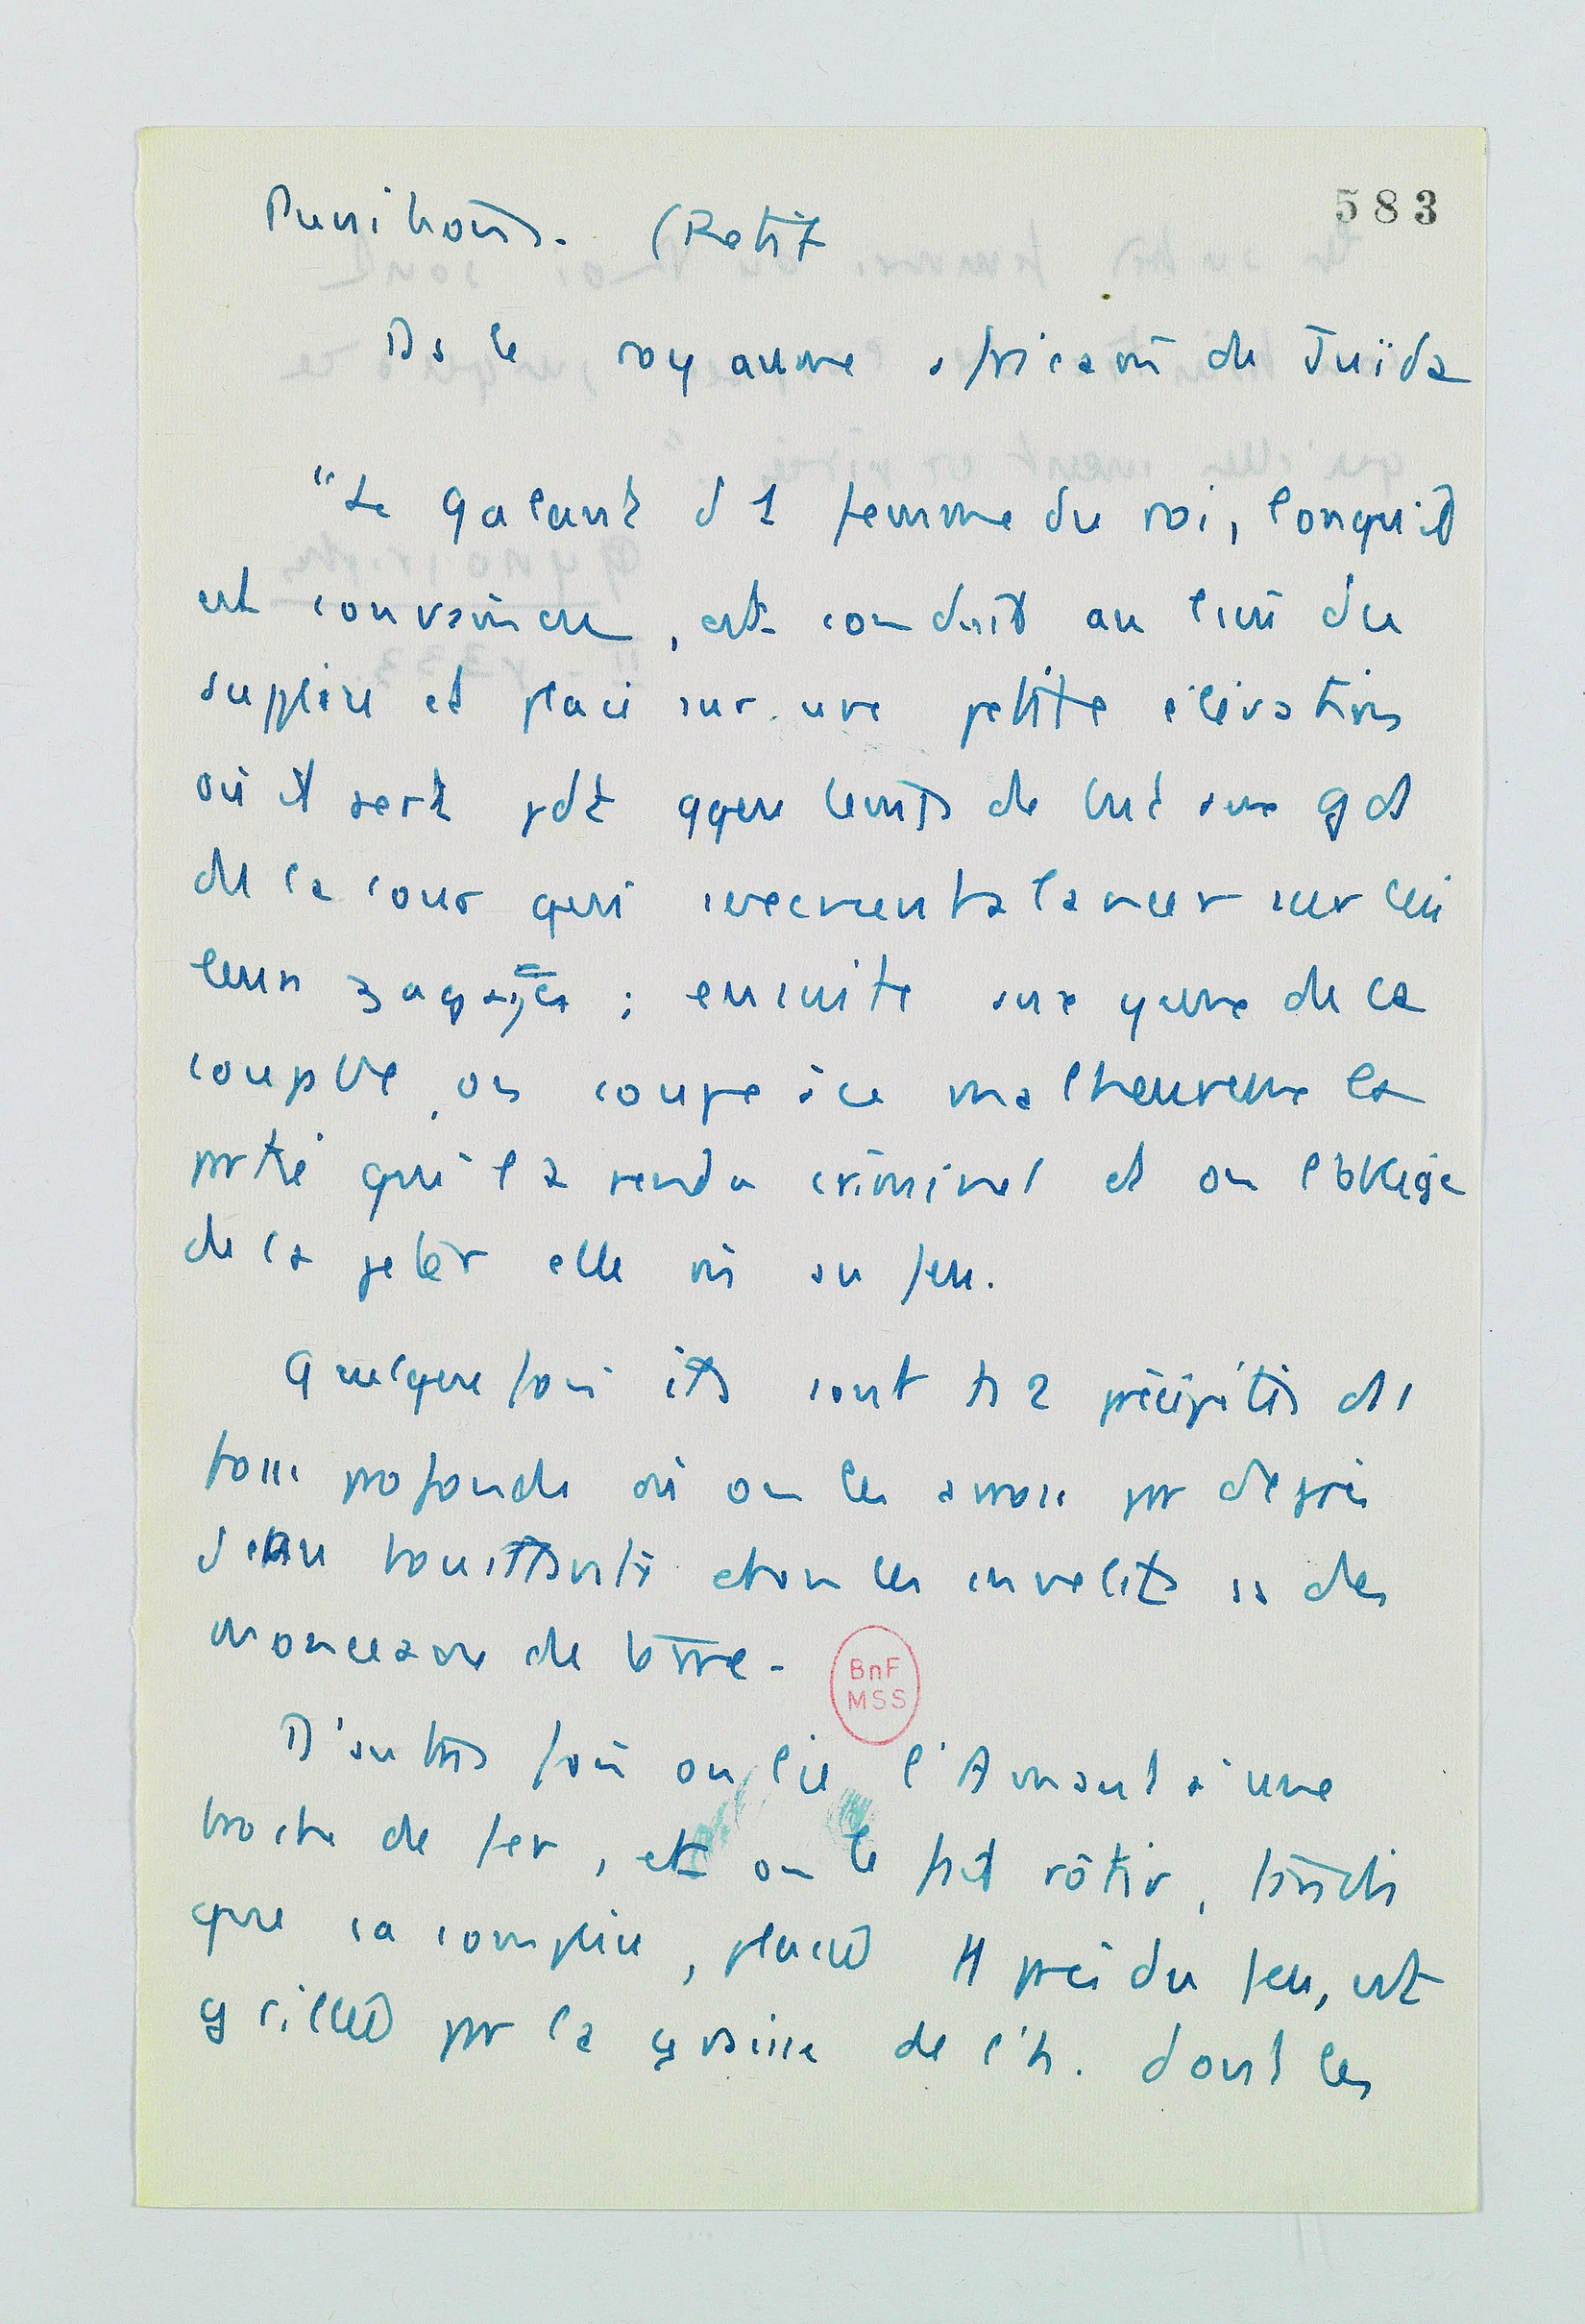 583
Punitions. (Retif
Ds le royaume africain de Juïda
"Le galant d 1 femme du roi, lorsqu'il
est convaincu, est conduit au lieu du
supplice et placé sur une petite élévation
où il sert pdt qque temps de but aux gds
de la cour qui à lancer sur lui
leurs zagaïes ; ensuite aux yeux de la
coupble, on coupe à ce malheureux la
partie qui l'a rendu criminel et on l'oblige
de la jeter elle m̂ au feu.
Quelquefois ils sont ts 2 précipités ds 1
fosse profonde où on les arrose par degrés
d'eau bouillante et on les ensevelit ss des
monceaux de terre.
BnF
MSS
D'autres fois on lie l'Amant à une
broche de fer, et on le fait rôtir, tandis
que sa complice, placée tt près du feu, est
grillée par la graisse de l'h. dont les